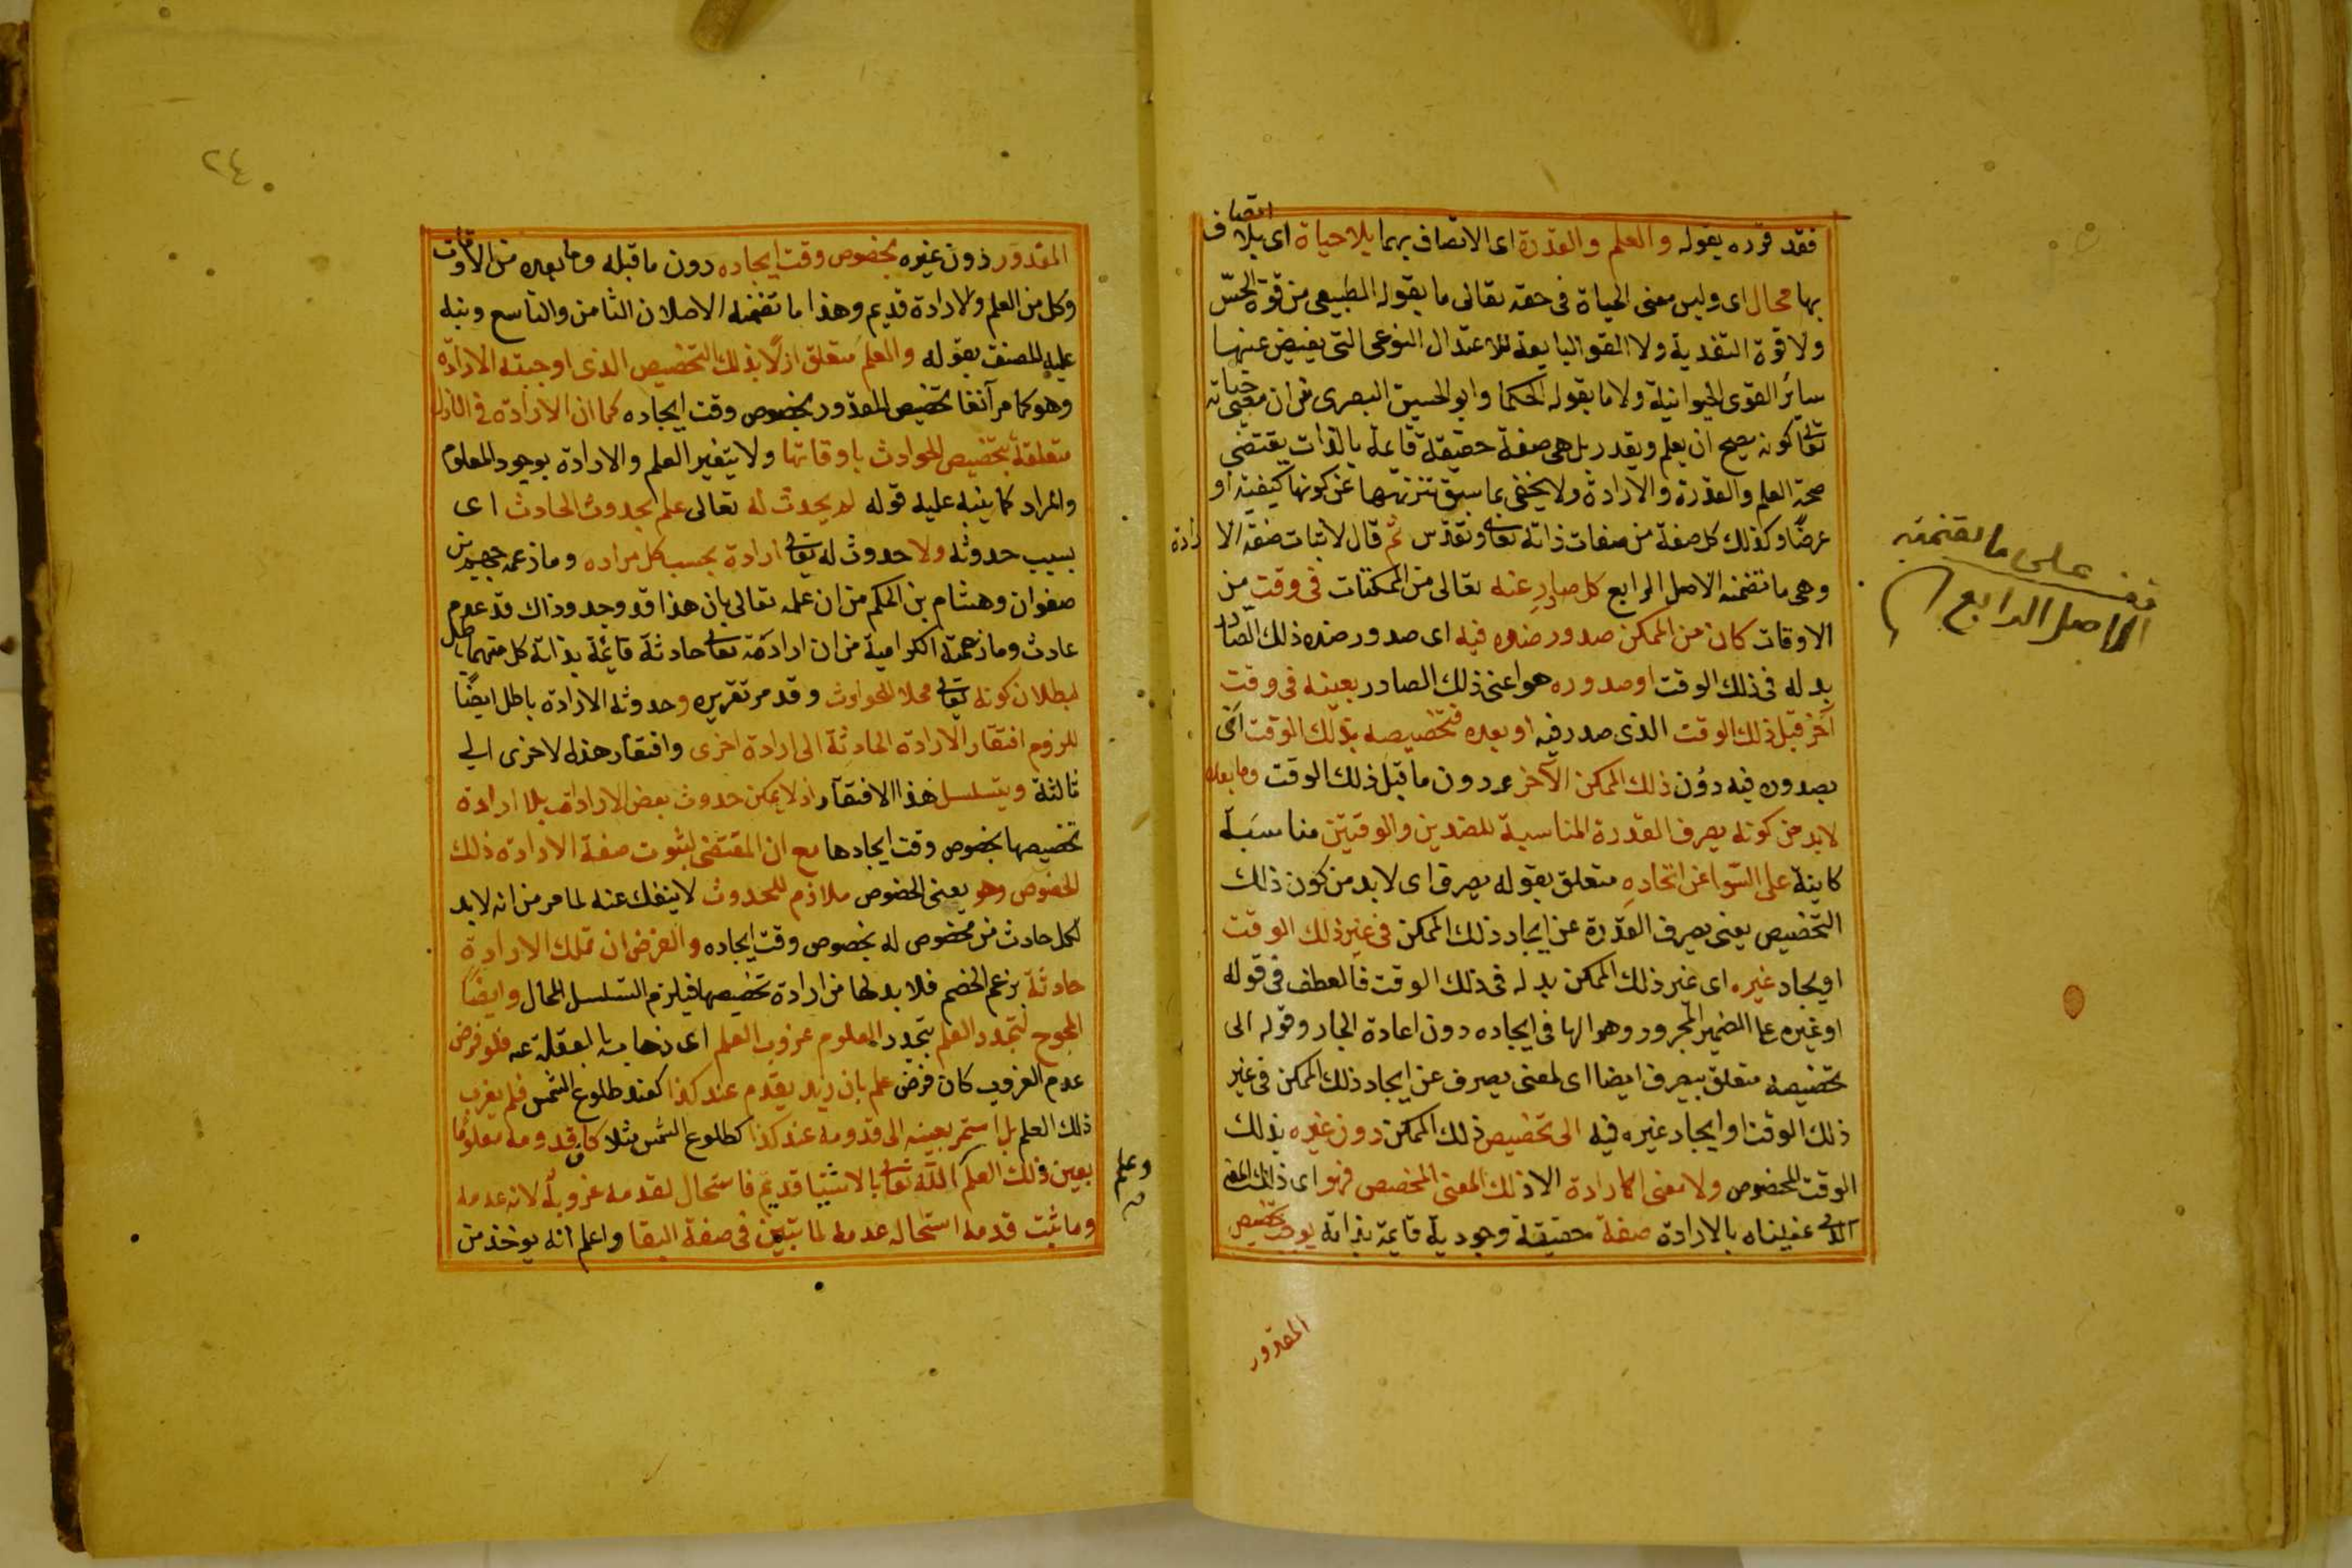 فقد قرره بقوله والعلم والقدرة اى الاتصاف بهما بلا حياة اى بلا اتصاف
بها محال اى وليس معنى الحياة فى حقه تعالى ما يقوله الطبيعى من قوة الحسّ
ولا قوة التغدية ولا القو التابعة للاعتدال النوعى التى يفيض عنها
سائر القوى الحيوانية ولا ما يقوله الحكما وابو الحسين البصرى من ان معنى حياته
تعالى كونه يصح ان يعلم ويقدر بل هى صفة حقيقة قايمة بالذات يقتضى
صحة العلم والقدرة والارادة ولا يخفى عما سبق تنزيهها عن كونها كيفية او
عرضًا وكذلك كل صفة من صفات ذاته تعالى وتقدس ثم قال لاثبات صفة الا رادة
وهى ما تضمنه الاصل الرابع كل صادر عنه تعالى من الممكنات فى وقت من
الاوقات كان من الممكن صدور ضده فيه اى صدور ضده ذلك الصادر
بدله فى ذلك الوقت او صدوره هو اعنى ذلك الصادر بعينه فى وقت
آخر قبل ذلك الوقت الذى صدر فيه او بعده فتخصيصه بذلك الوقت اى
بصدوره فيه دون ذلك الممكن الآخر عد دون ما قبل ذلك الوقت وما بعده
لا بد من كونه يصرف القدرة المناسبة للضدين والوقتين مناسبة
كاينة على السّوا عن اتحاده متعلق بقوله يصرف اى لا بد من كون ذلك
التخصيص يعنى يصرف القدرة عن ايجاد ذلك الممكن فى غير ذلك الوقت
او يجاد غيره اى غير ذلك الممكن بدله فى ذلك الوقت فالعطف فى قوله
او غيره عا الضمير المجرور وهو الها فى ايجاده دون اعادة الجار وقوله الى
تخضيصه متعلق بيصرف ايضا اى لمعنى يصرف عن ايجاد ذلك الممكن فى غير
ذلك الوقت او ايجاد غيره فيه الى تخصيص ذلك الممكن دون غيره بذلك
الوقت المخصوص ولا معنى الارادة الا ذلك المعنى المخصص فهو اى ذلك المعنى
الذى عنيناه بالارادة صفة حقيقة وجودية قايمة بذاته يوجب تخصيص
المقدور
قف على ما تضمنه
الاصل الرابع
٢٤
المقدور دون غيره بخصوص وقت ايجاده دون ما قبله وما بعده من الاوقات
وكل من العلم والارادة قديم وهذا ما تضمنه الاصلان الثامن والتاسع ونبه
عليه المصنف بقوله والعلم متعلق ازلًا بذلك التخصيص الذى اوجبته الارادة
وهو كما مر آنفا تخصيص المقدور بخصوص وقت ايجاده كما ان الارادة فى الازل
متعلقة بتخصيص الحوادث باوقاتها ولا يتغير العلم والارادة بوجود المعلوم
والمراد كما ينبه عليه قوله لم يحدث له تعالى علم بحدوث الحادث اى
بسبب حدوثه ولا حدوث له تعالى ارادة بحسب كل مراده وما زعمه جهم بن
صفوان وهشام بن الحكم من ان علمه تعالى بان هذا قد وجد وذاك قد عدم
حادث وما زعمته الكرامية من ان ارادته تعالى حادثة قائمة بذاته كل منهما باطل
لبطلان كونه تعالى محلا للحوادث وقد مر تقريره وحدوثه الارادة باطل ايضًا
للزوم افتقار الارادة الحادثة الى ارادة اخرى وافتقار هذه لاخرى الى
ثالثة ويتسلسل هذا الافتقار اذ لا يمكن حدوث بعض الارادات بلا ارادة
تخصيصها بخصوص وقت ايجادها مع ان المقتضى لثبوت صفة الارادة ذلك
الخصوص وهو يعنى الخصوص ملازم للحدوث لا ينفك عنه لما مر من انه لا بد
لكل حادث من مخصوص له بخصوص وقت ايجاده والفرض ان تلك الارادة
حادثة بزعم الخصم فلا بد لها من ارادة تخصيصها فيلزم التسلسل المحال وايضًا
المحوج لتجدد العلم بتجدد المعلوم عزوب العلم اى ذهابه بالغفلة عنه فلو فرض
عدم العزوب كان فرض علم بان زيد يقدم عند كذا كعند طلوع الشمس فلم يعزب
ذلك العلم بل استمر بعينه الى قدومه عند كذا كطلوع الشمس مثلا كان قدومه معلومًا
بعين ذلك العلم وعلم الله تعالى بالاشيا قديم فاستحال لقدمه عزوبه لانه عدمه
وما ثبت قدمه استحال عدمه لما تبين فى صفة البقا واعلم انه يوخذ من